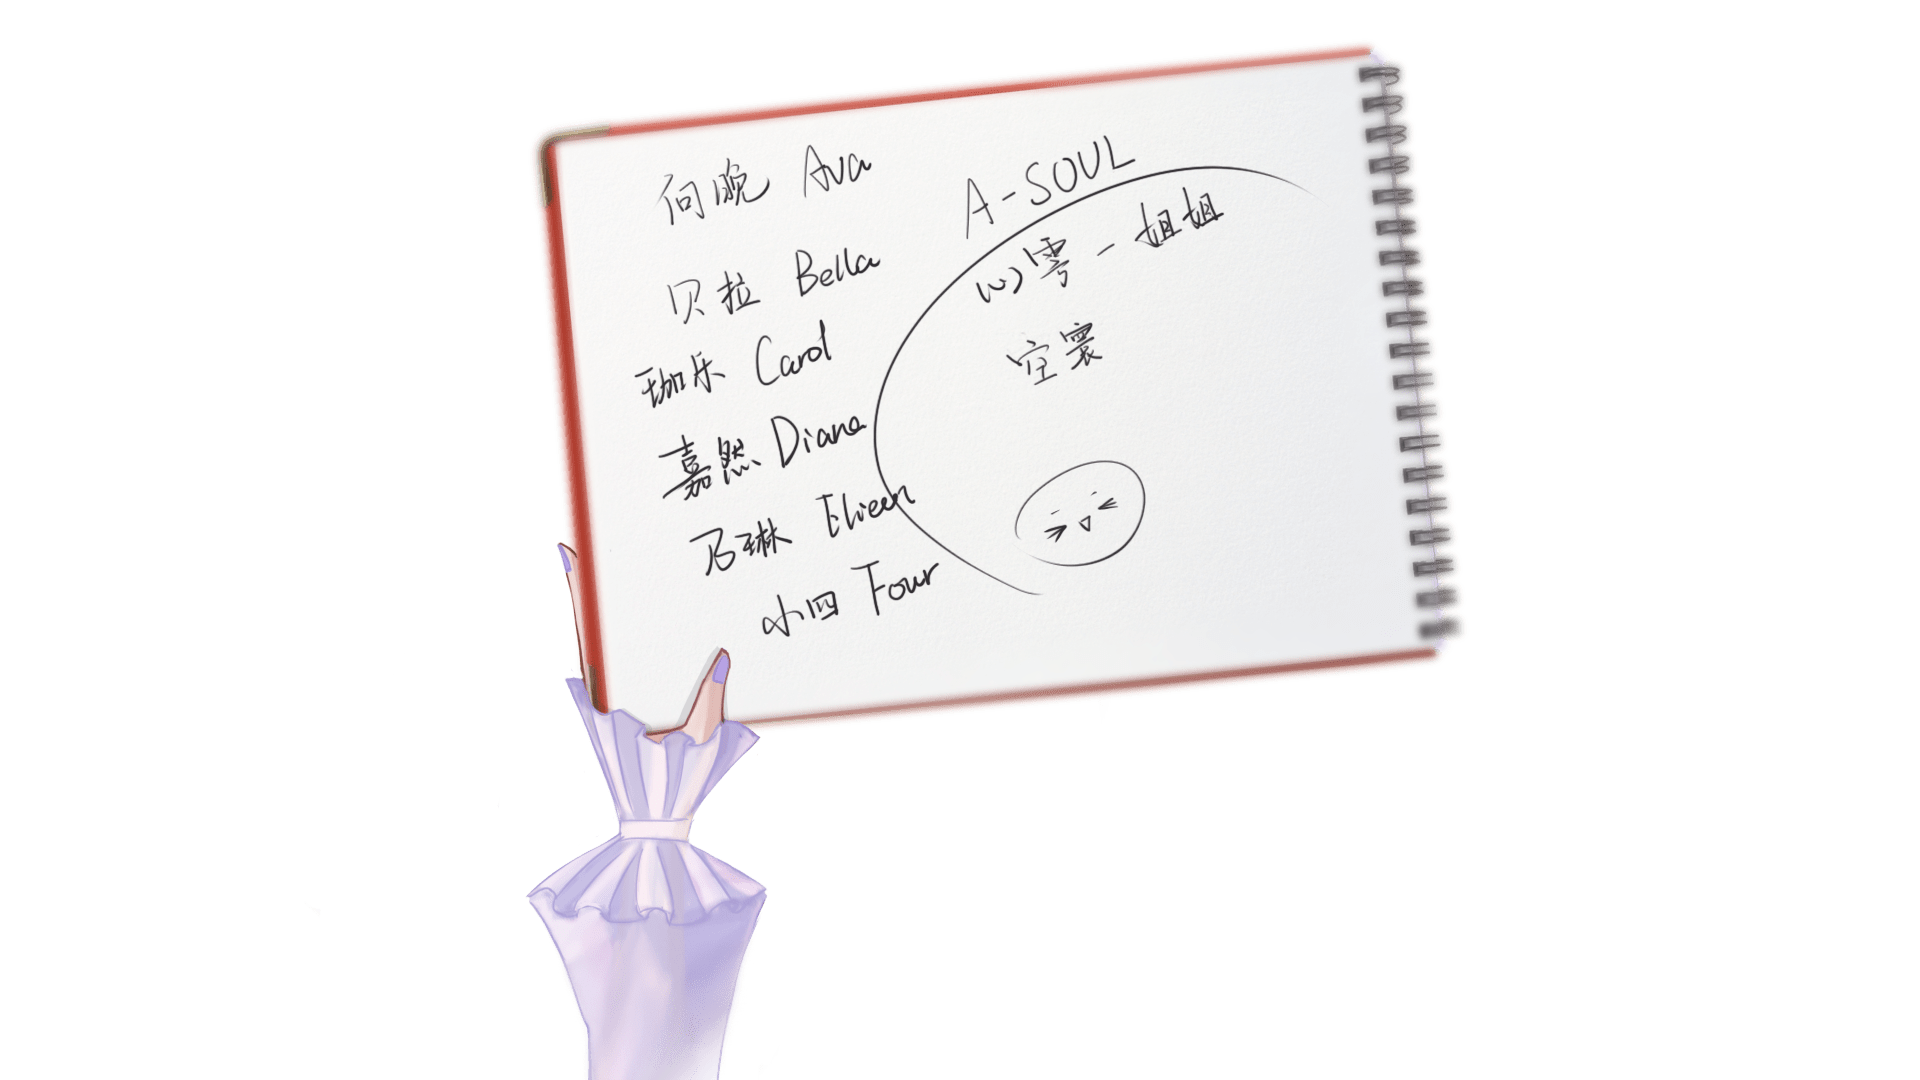 向晚 Ava
贝拉 Bella
珈乐 Carol
嘉然 Diana
乃琳 Elieen
小四 Four
A-SOUL
心雩-姐姐
空寰